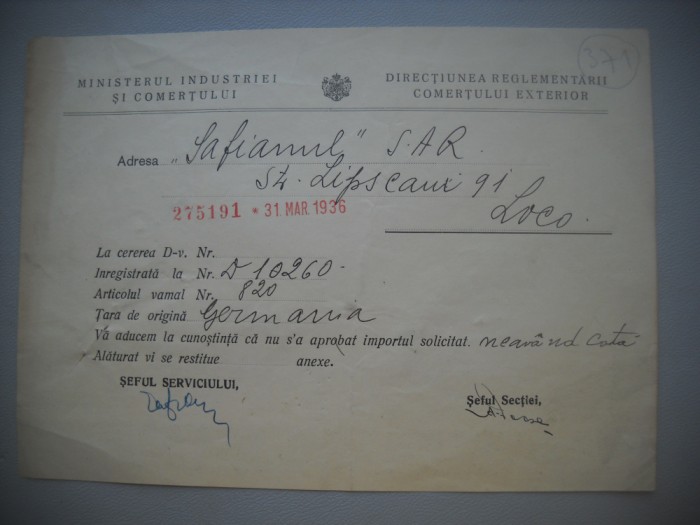 371
MINISTERUL INDUSTRIEI
ȘI COMERȚULUI
DIRECȚIUNEA REGLEMENTĂRII
COMERȚULUI EXTERIOR
Adresa „Safianul” S.A.R.
Str. Lipscani 91
275191 * 31. MAR. 1936
Loco.
La cererea D-v. Nr.
Inregistrată la Nr. D 10260.
Articolul vamal Nr. 820
Țara de origină Germania
Vă aducem la cunoștință că nu s'a aprobat importul solicitat. neavând cotă
Alăturat vi se restitue anexe.
ȘEFUL SERVICIULUI,
Șeful Secției,